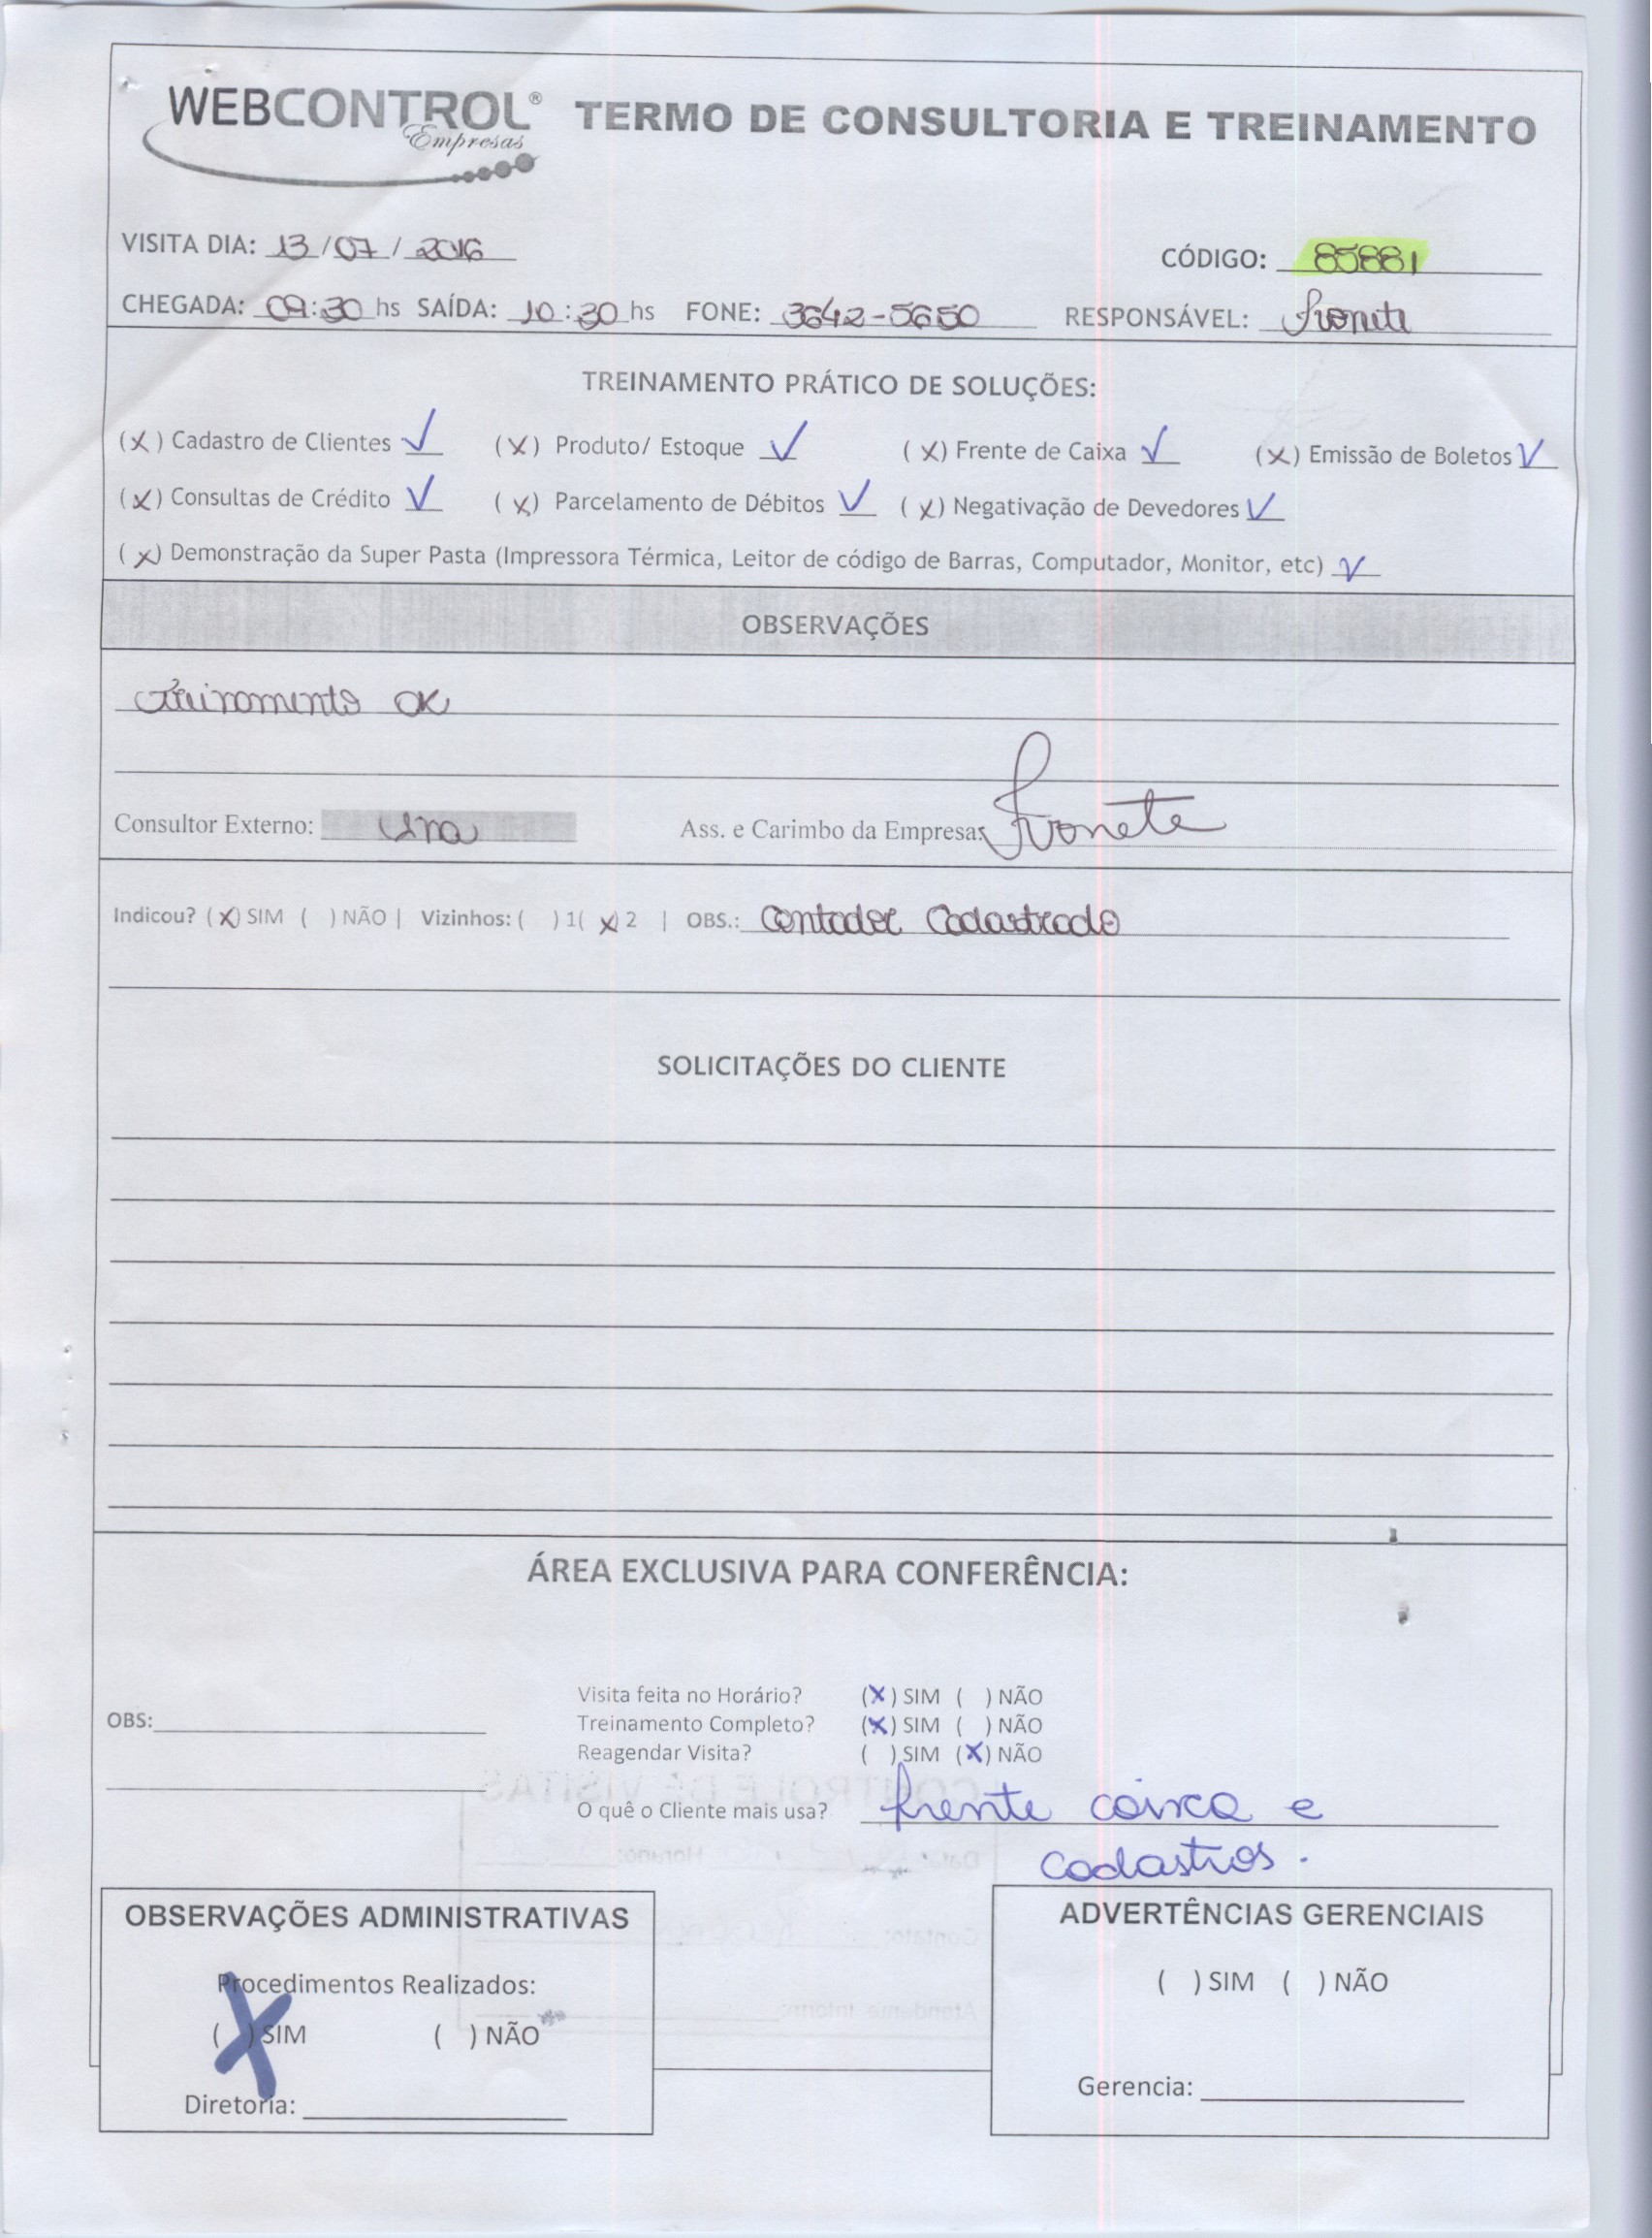 WEBCONTROL® Empresas TERMO DE CONSULTORIA E TREINAMENTO
VISITA DIA: 13/07/2016 CÓDIGO: 85881
CHEGADA: 09:30 hs SAÍDA: 10:30 hs FONE: 3642-5650 RESPONSÁVEL: Ivonete
TREINAMENTO PRÁTICO DE SOLUÇÕES:
(X) Cadastro de Clientes ✓ (X) Produto/ Estoque ✓ (X) Frente de Caixa ✓ (X) Emissão de Boletos ✓
(X) Consultas de Crédito ✓ (X) Parcelamento de Débitos ✓ (X) Negativação de Devedores ✓
(X) Demonstração da Super Pasta (Impressora Térmica, Leitor de código de Barras, Computador, Monitor, etc) ✓
OBSERVAÇÕES
Treinamento OK
Consultor Externo: Ass. e Carimbo da Empresa: Ivonete
Indicou? (X) SIM ( ) NÃO | Vizinhos: ( ) 1 (X) 2 | OBS.: Contador Cadastrado
SOLICITAÇÕES DO CLIENTE
ÁREA EXCLUSIVA PARA CONFERÊNCIA:
Visita feita no Horário? (X) SIM ( ) NÃO
OBS: Treinamento Completo? (X) SIM ( ) NÃO
Reagendar Visita? ( ) SIM (X) NÃO
O quê o Cliente mais usa? frente caixa e
cadastros.
OBSERVAÇÕES ADMINISTRATIVAS
Procedimentos Realizados:
(X) SIM ( ) NÃO
Diretoria:
ADVERTÊNCIAS GERENCIAIS
( ) SIM ( ) NÃO
Gerencia: